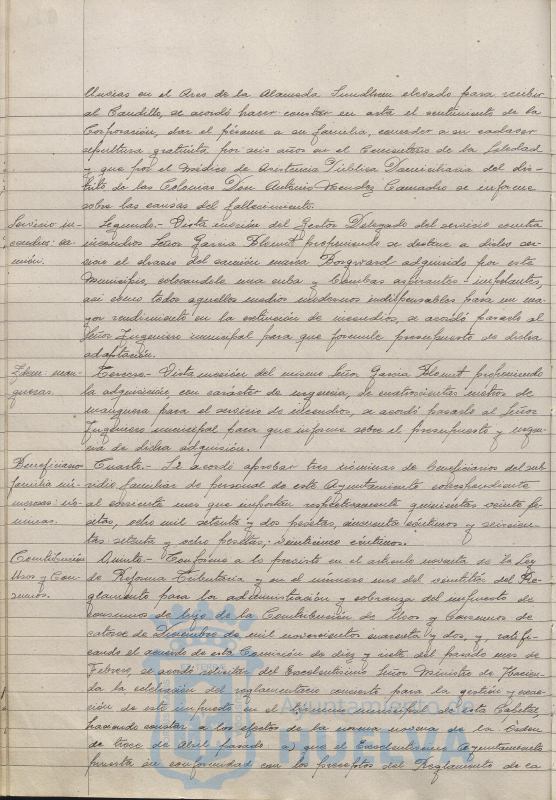 en el Arco de la Alameda Sundheim elevado para recibir
al Caudillo, se acordó hacer constar en acta el sentimiento de la
Corporación, dar el pésame a su familia, conceder a su cadaver
sepultura gratuita por seis años en el Cementerio de la Soledad
y que por el Médico de Asistencia Pública Domiciliaria del dis-
trito de las Colonias Don Antonio Mendez Camacho se informe
sobre las causas del fallecimiento.
Servicio in-
cendios: ca-
mión.
Segundo.- Vista moción del Gestor Delegado del servicio contra
incendios Señor Garcia proponiendo se destine a dicho ser-
vicio el chasis del camión marca Borgward adquirido por este
Municipio, colocandole una cuba y bombas aspirantes-impelentes,
así como todos aquellos medios modernos indispensables para un ma-
yor rendimiento en la extinción de incendios, se acordó pasarlo al
Señor Ingeniero municipal para que formule presupuesto de dicha
adaptación.
Idem: man-
gueras.
Tercero.- Vista moción del mismo Señor Garcia proponiendo
la adquisición, con carácter de urgencia, de cuatrocientos metros de
manguera para el servicio de incendios, se acordó pasarlo al Señor
Ingeniero municipal para que informe sobre el presupuesto y urgen-
cia de dicha adquisición.
Beneficiarios
familia nu-
merosas: nó-
minas.
Cuarto.- Se acordó aprobar tres nóminas de beneficiarios del sub-
sidio familiar de personal de este Ayuntamiento correspondiente
al corriente mes que importan respectivamente quinientas veinte pe-
setas, ocho mil setenta y dos pesetas, cincuenta céntimos y seiscien-
tas setenta y ocho pesetas, veinticinco céntimos.
Contribución
Usos y Con-
sumos.
Quinto.- Conforme a lo previsto en el artículo noventa de la Ley
de Reforma Tributaria y en el número uno del veintitres del Re-
glamento para la administración y cobranza del impuesto de
consumos de lujo de la Contribución de Usos y Consumos de
catorce de Diciembre de mil novecientos cuarenta y dos, y, ratifi-
cando el acuerdo de esta Comisión de diez y siete del pasado mes de
Febrero, se acordó solicitar del Excelentísimo Señor Ministro de Hacien-
da la celebración del reglamentario concierto para la gestión y exac-
ción de este impuesto en el término municipal de esta Capital,
haciendo constar, a los efectos de la norma novena de la Orden
de trece de Abril pasado a) que el Excelentísimo Ayuntamiento
presta su conformidad con los preceptos del Reglamento de la
Ayuntamiento de
HUELVA